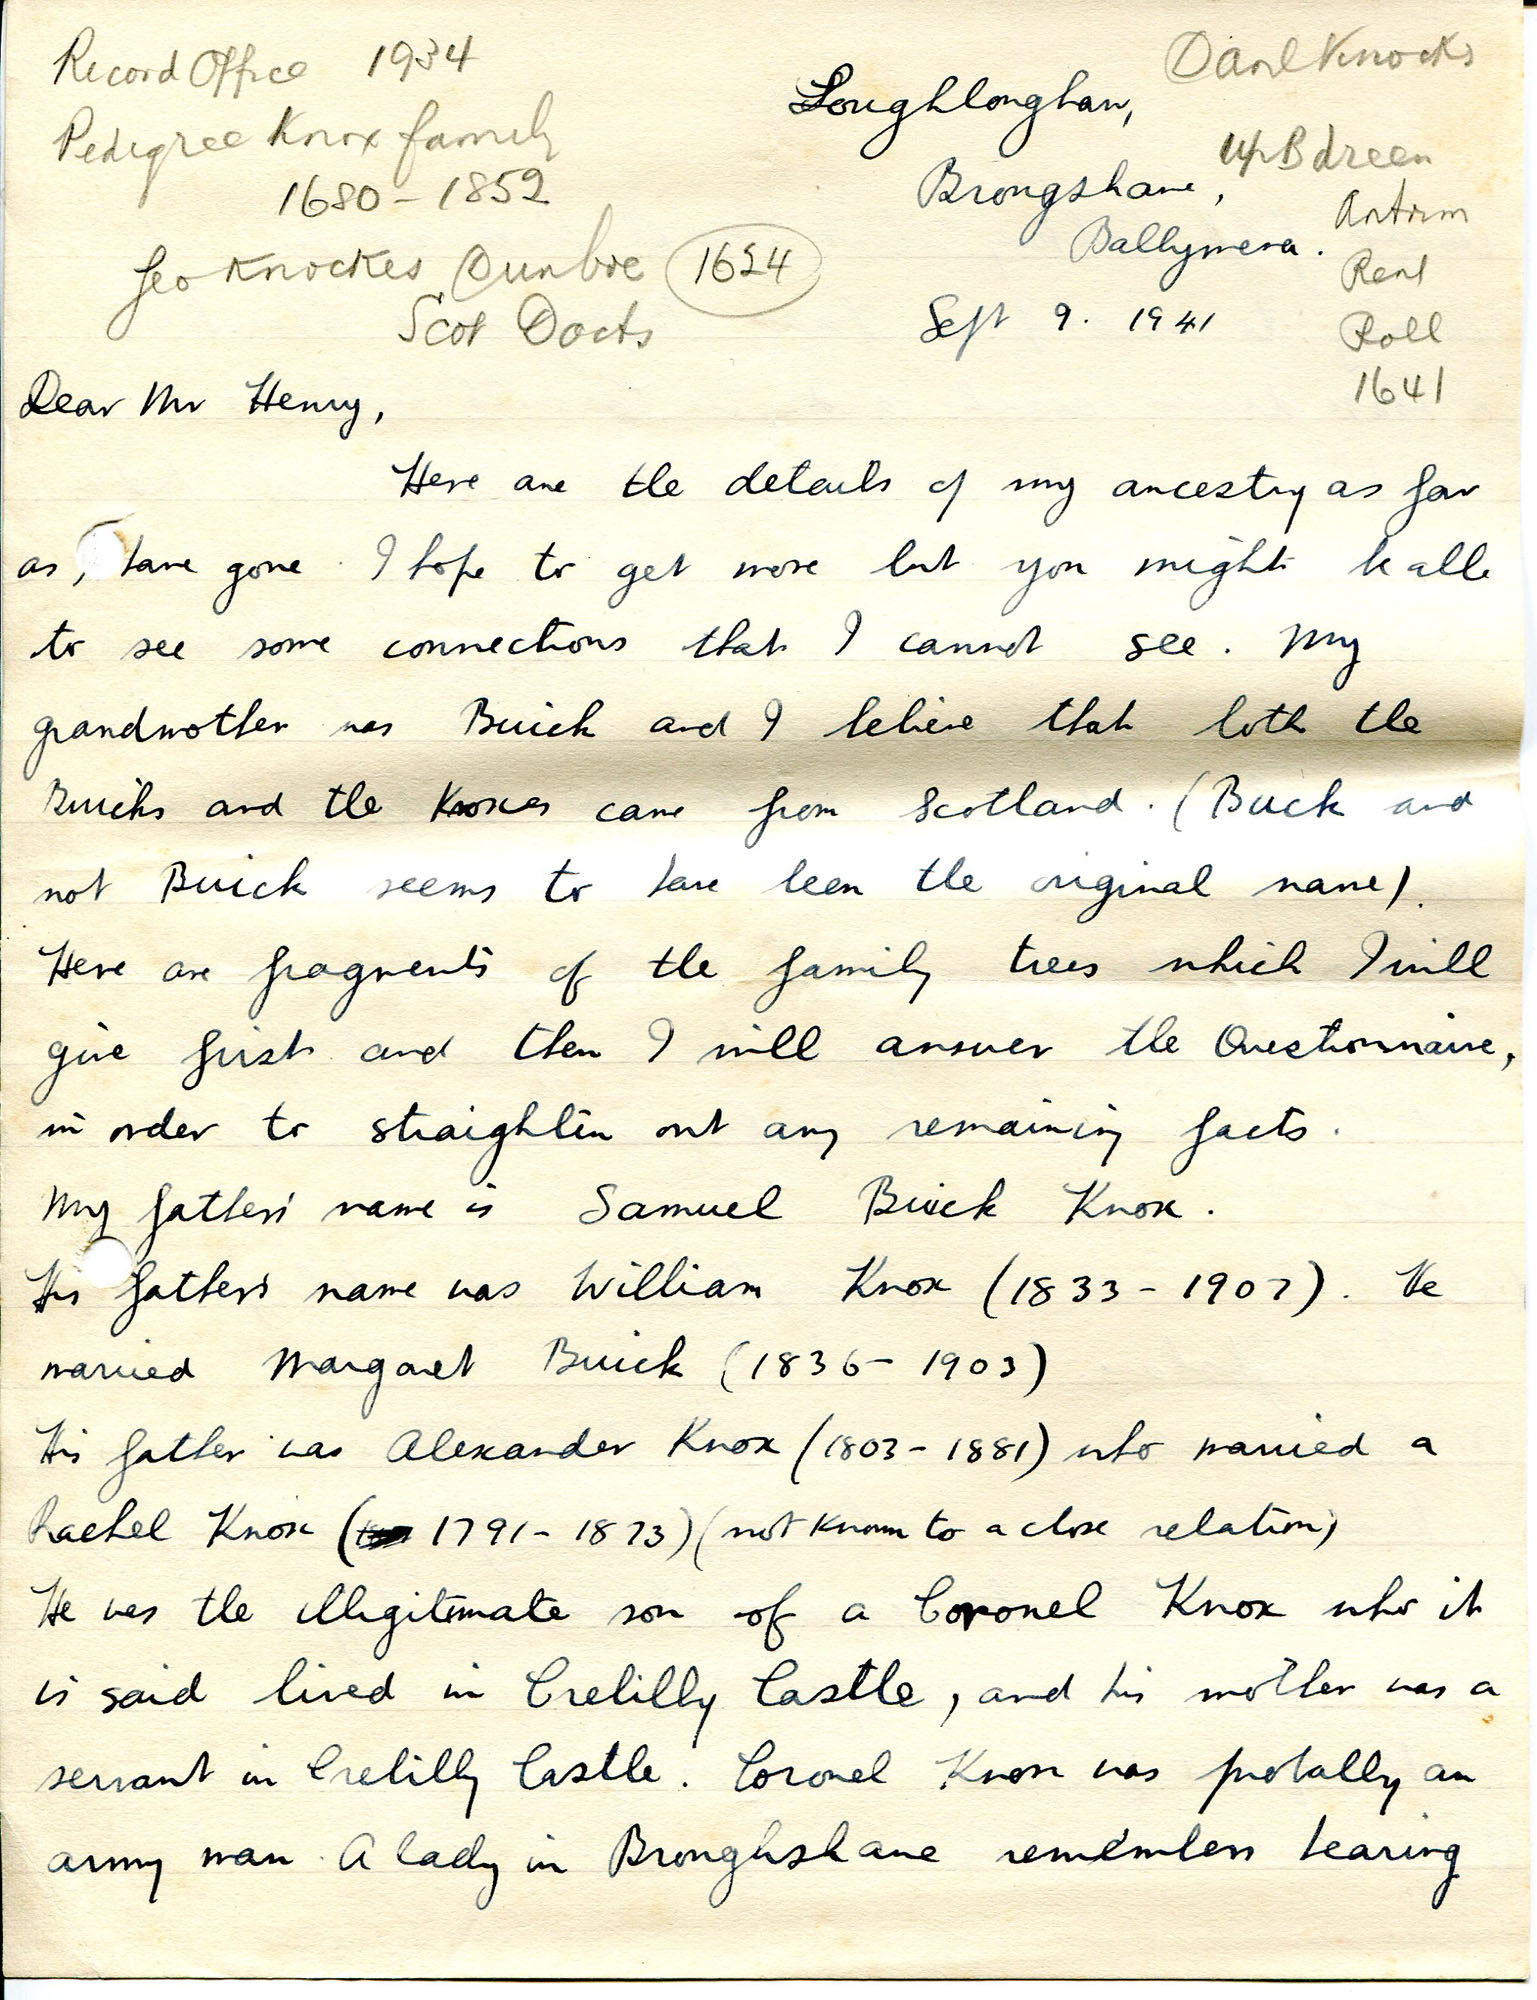 Record Office 1934
Pedigree Knox family
1680 - 1852
Geo Knockes Dunbre 1624
Scot Docts
Knocks
Up Bdreen
Antrim
Rent
Roll
1641
Loughloughan,
Brougshane,
Ballymena.
Sept 9. 1941
Dear Mr Henry,
Here are the details of my ancestry as far
as I have gone. I hope to get more but you might be able
to see some connections that I cannot see. My
grandmother was Buick and I believe that both the
Buicks and the Knoxes came from Scotland. (Buck and
not Buick seems to have been the original name).
Here are fragments of the family trees which I will
give first and then I will answer the Questionnaire,
in order to straighten out any remaining facts.
My father's name is Samuel Buick Knox.
His father's name was William Knox (1833 - 1907). He
married Margaret Buick (1836 - 1903)
His father was Alexander Knox (1803 - 1881) who married a
Rachel Knox (1791 - 1873) (not known to a close relation)
He was the illegitimate son of a Coronel Knox who it
is said lived in Crebilly Castle, and his mother was a
servant in Crebilly Castle. Coronel Knox was probably an
army man. A lady in Broughshane remembers hearing